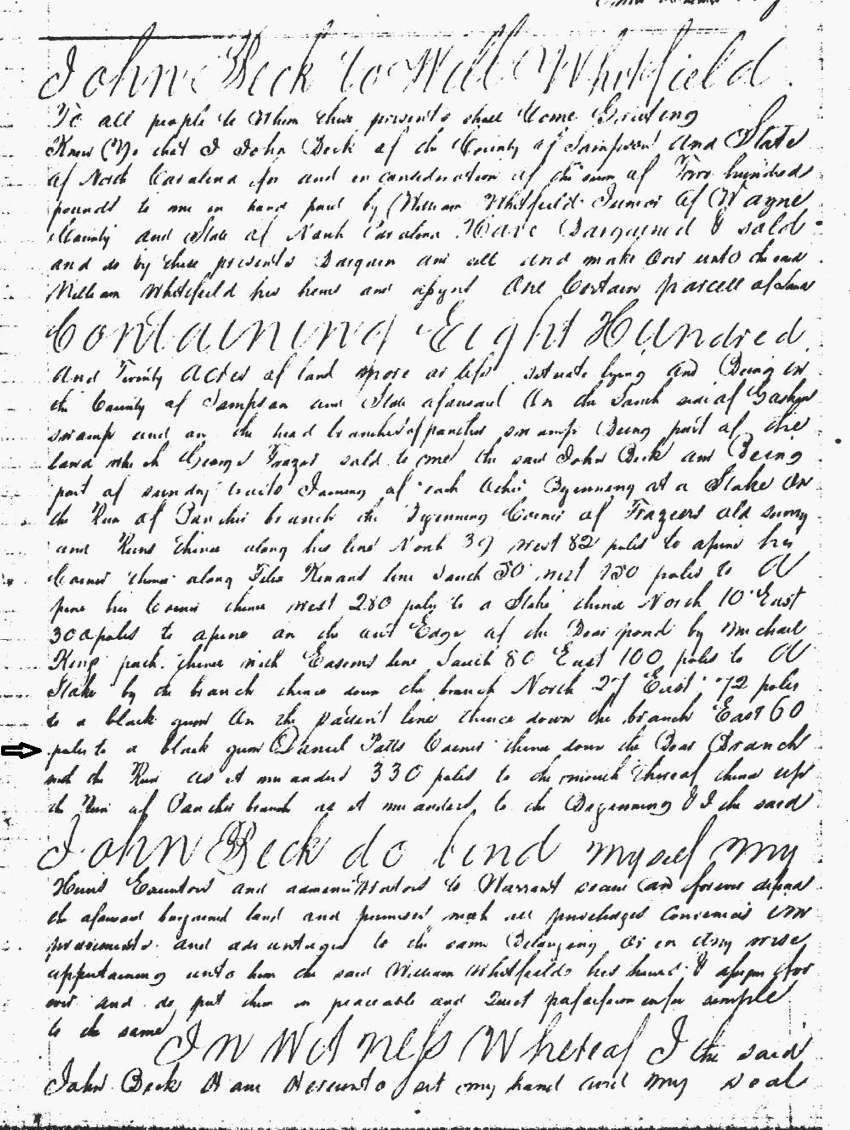 John Beck to Will Whitfield.
To all people to Whom these presents shall Come Greeting
Know Ye that I John Beck of the County of Sampson and State
of North Carolina for and in consideration of the sum of Two hundred
pounds to me in hand paid by William Whitfield Junior of Wayne
County and State of North Carolina Have Bargained & sold
and do by these presents Bargain and sell and make over unto the said
William Whitfield his heirs and assigns One Certain parcell of Land
Containing Eight Hundred
and Twenty acres of land more or less situate lying and Being in
the County of Sampson and State aforesaid On the South side of
swamp and on the head branches of panther swamp Being part of the
land which George Frazer sold to me the said John Beck and Being
part of sundry tracts Joining of each other Begenning at a Stake on
the Run of Panther branch the Begenning Corner of Frazeers old survey
and Runs thence along his line North 39 west 82 poles to a pine his
Corner thence along Felix Kenans line South 50 west 130 poles to a
pine his Corner thence west 280 poles to a Stake thence North 10 East
300 poles to a pine on the out Edge of the Bear pond by Michael
King thence with Easoms line South 80 East 100 poles to a
Stake by the branch thence down the branch North 27 East 72 poles
to a black gum On the patent line thence down the branch East 60
poles to a black gum Daniel Corner thence down the Bear Branch
with the Run as it meanders 330 poles to the mouth thereof thence up
the Run of Panther branch as it meanders to the Beginning & I the said
John Beck do bind myself my
Heirs Executors and administrators to Warrant secure and forever defend
the aforesaid bargained land and premises with all
and advantages to the same Belonging or in any wise
appertaining unto him the said William Whitfield his heirs & assigns for
ever and do put them in peaceable and Quiet possession simple
to the same In Witness Whereof I the said
John Beck Have Hereunto set my hand and my seal